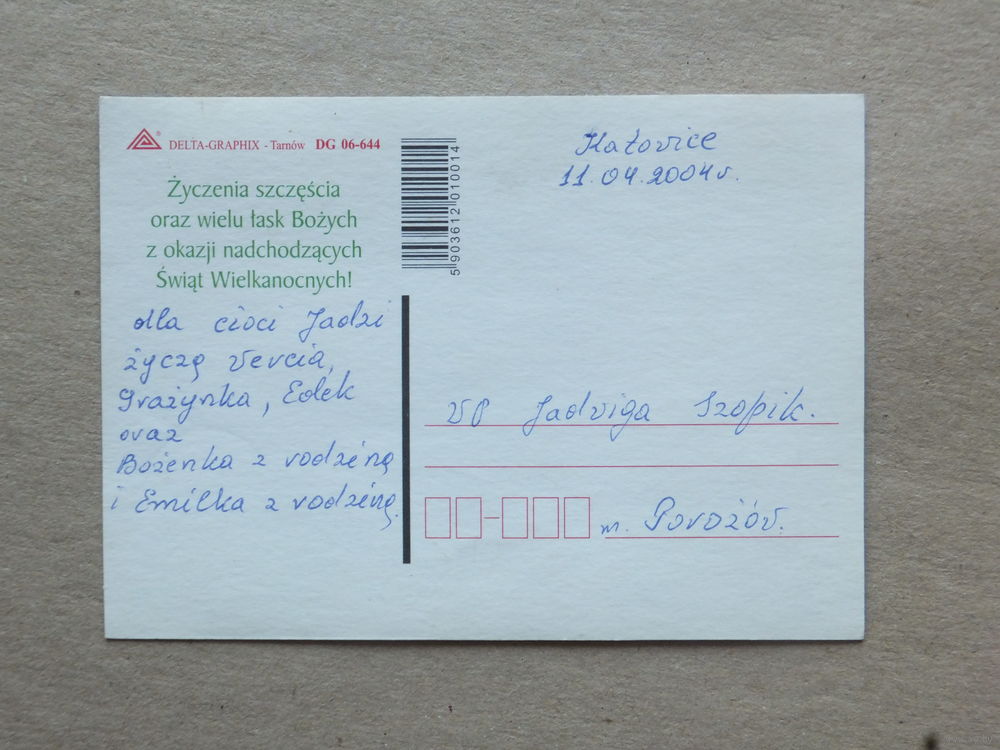 DELTA-GRAPHIX - Tarnów DG 06-644
Życzenia szczęścia
oraz wielu łask Bożych
z okazji nadchodzących
Świąt Wielkanocnych!
dla cioci Jadzi
życzą Wercia,
Grażynka, Edek
oraz
Bożenka z rodziną
i Emilka z rodziną.
5903612010014
Katowice
11.04.2004r.
WP Jadwiga Szopik.
m. Porozów.